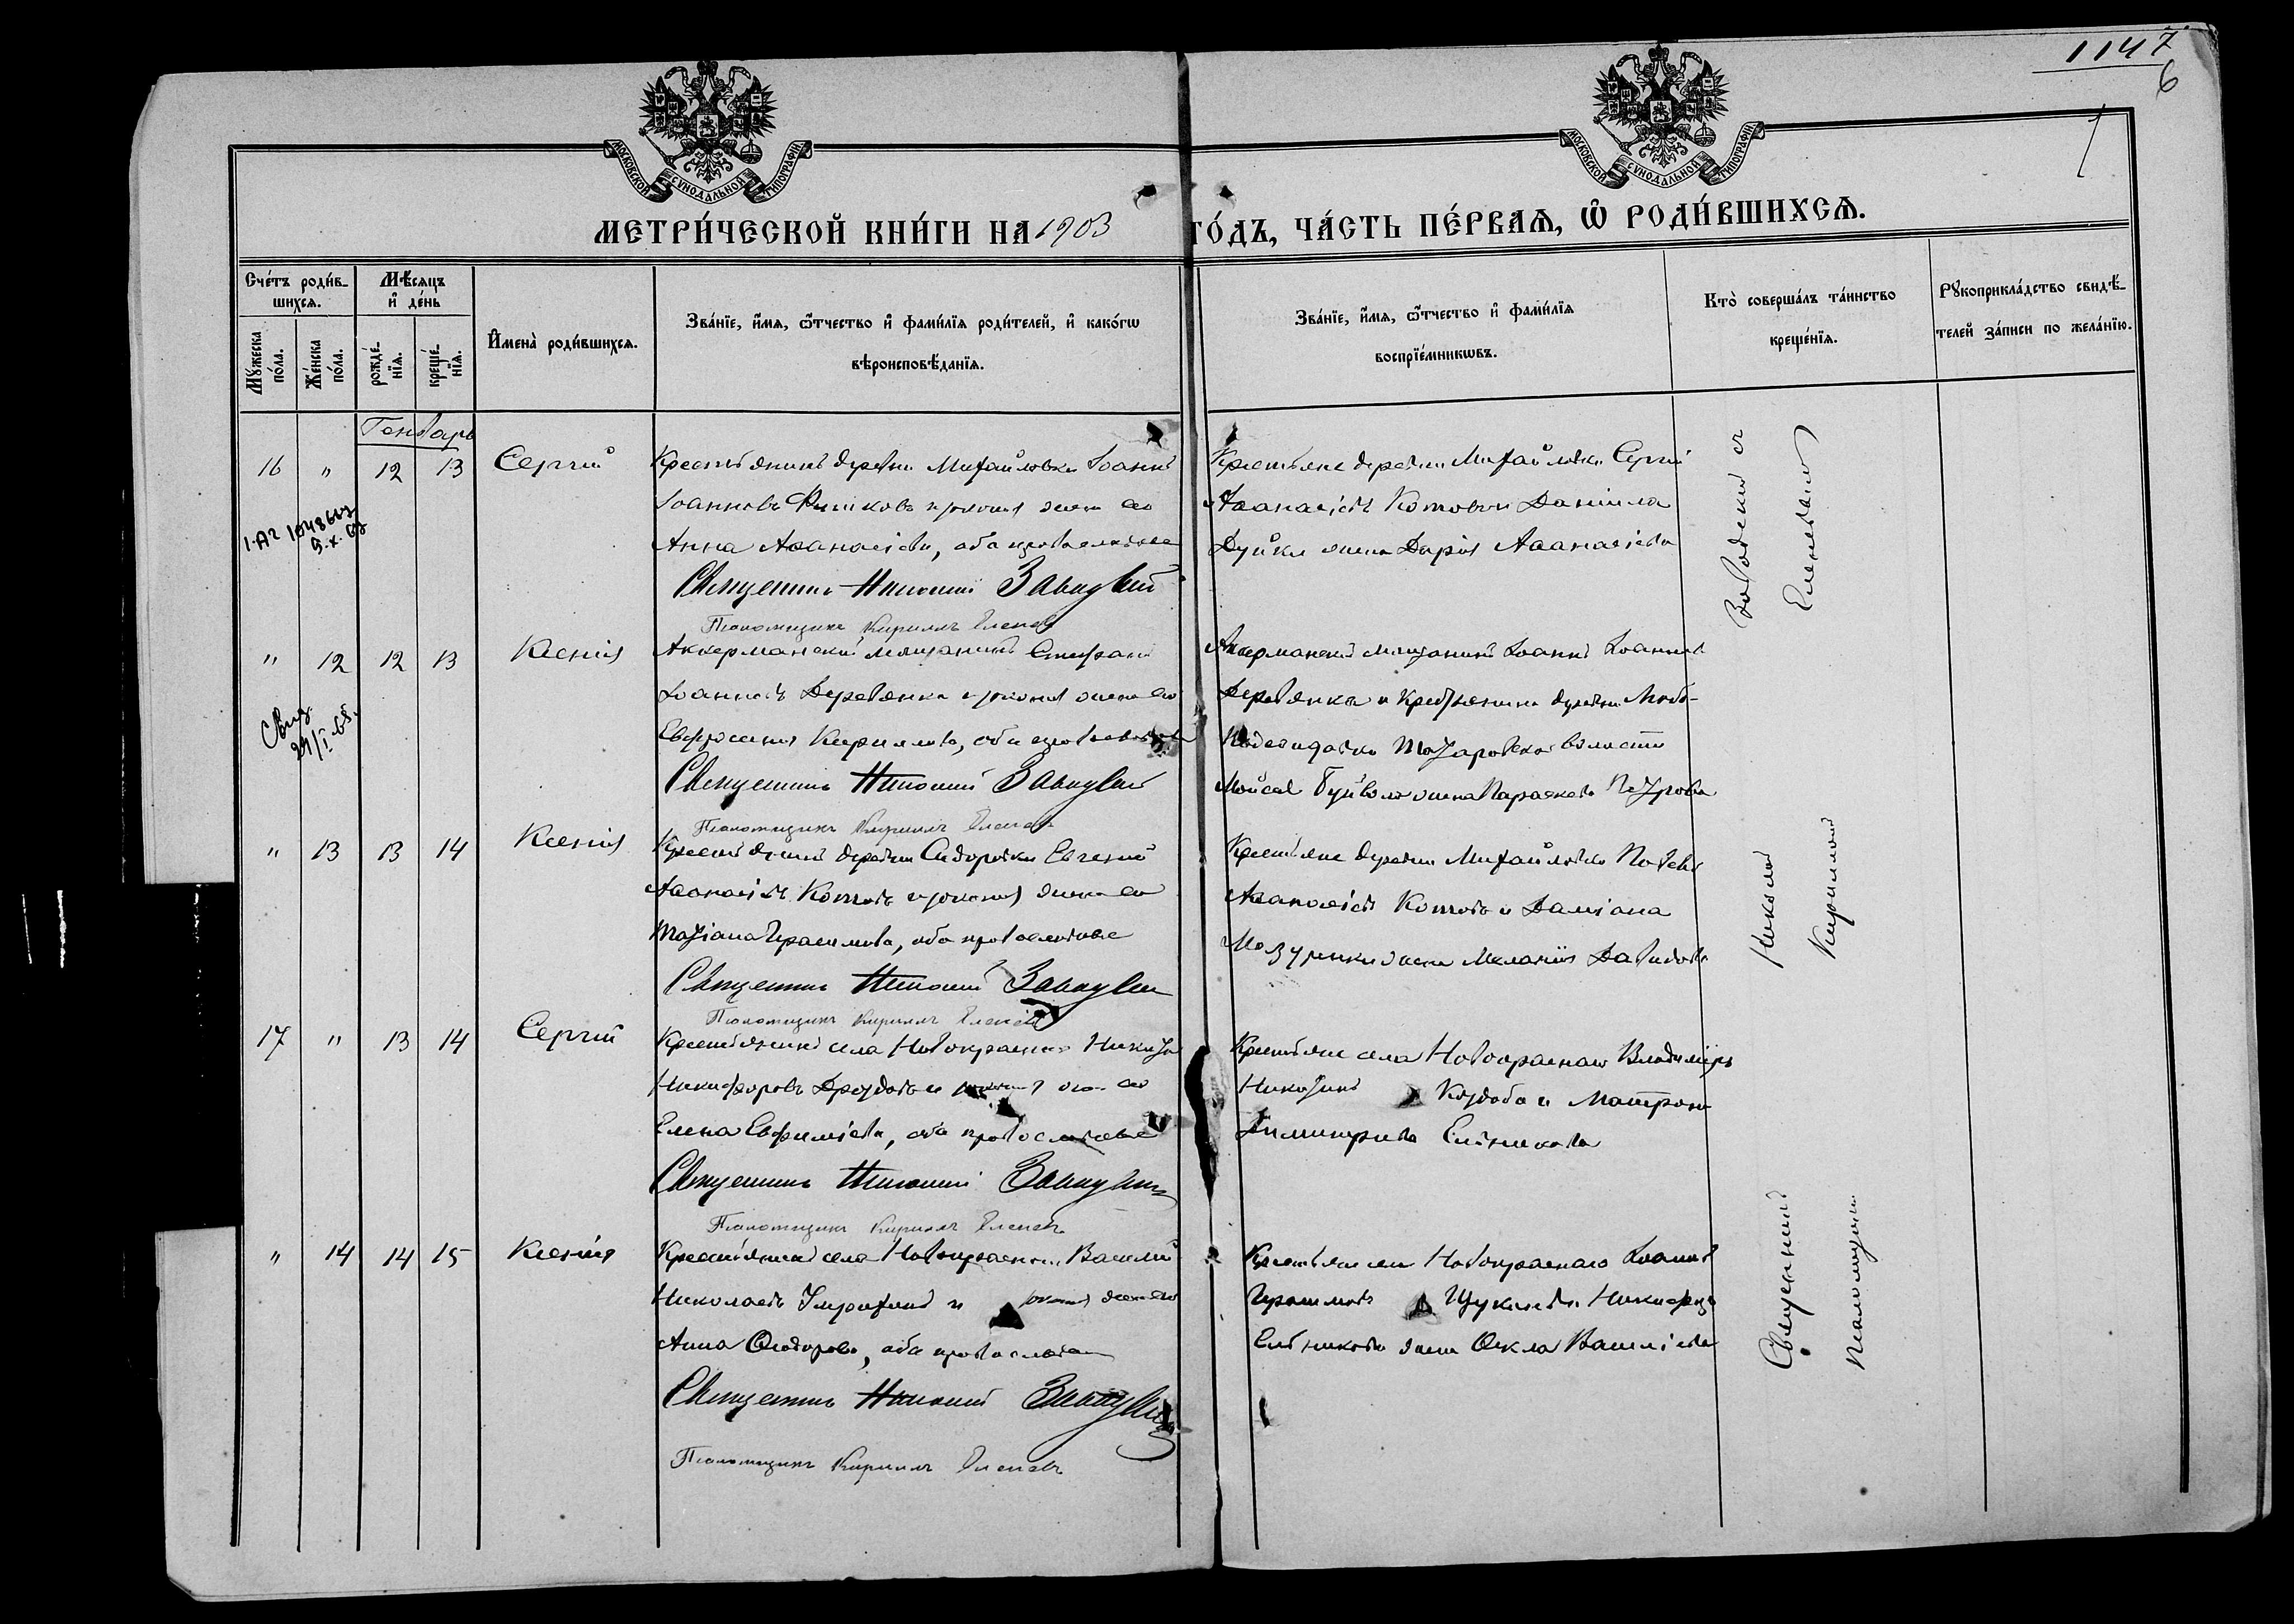 1147
6
МОСКОВСКОЙ СѴНОДАЛЬНОЙ ТИПОГРАФІИ
МОСКОВСКОЙ СѴНОДАЛЬНОЙ ТИПОГРАФІИ
МЕТРИ́ЧЕСКОЙ КНИ́ГИ НА 1903 ГО́ДЪ, ЧА́СТЬ ПЕ́РВАѦ, Ѡ҆ РОДИ́ВШИХСѦ.
Сче́тъ роди́в-
шихсѧ.
Мꙋ́жеска по́ла.
Же́нска по́ла.
Мѣ́сѧцъ и҆ де́нь
рожде́-
нїѧ.
креще́-
нїѧ.
И҆мена̀ роди́вшихсѧ.
Зва́нїе, и҆́мѧ, ѻ҆́тчество и҆ фами́лїѧ роди́телей, и҆ како́гѡ
вѣроисповѣ́данїѧ.
Зва́нїе, и҆́мѧ, ѻ҆́тчество и҆ фами́лїѧ
воспрїе́мникѡвъ.
Кто̀ соверша́лъ та́инство
креще́нїѧ.
Рꙋкоприкла́дство свидѣ́-
телей за́писи по жела́нїю.
Генварь
16 " 12 13 Сергій
Крестьянинъ деревни Михайловки Іоаннъ
Іоанновъ и законная жена его
Анна Аѳанасіева, оба православные
Священникъ Николай Заводскій
Псаломщикъ Кириллъ Еленевъ
Крестьяне деревни Михайловки Сергій
Аѳанасіевъ Котовъ и Даніила
жена Дарія Аѳанасіева
5.X.63
" 12 12 13 Ксенія
Аккерманскій мещанинъ Стефанъ
Іоанновъ Деревянка и законная жена его
Евфросинія Кириллова, оба православные
Священникъ Николай Заводскій
Псаломщикъ Кириллъ Еленевъ
Аккерманскій мещанинъ Іоаннъ Іоанновъ
Деревянка и Крестьянина деревни
волости
Мойсея жена Параскева Петрова
29/I 68.
" 13 13 14 Ксенія
Крестьянинъ деревни Сидоровки Евгеній
Аѳанасіевъ Котовъ и законная жена его
Татіана Герасимова, оба православные
Священникъ Николай Заводскій
Псаломщикъ Кириллъ Еленевъ
Крестьяне деревни Михайловки
Аѳанасіевъ Котовъ и Даміана
Мазуренки жена Меланія Давидова
17 " 13 14 Сергій
Крестьянинъ села Новокраснаго Никита
Никифоровъ Дроздовъ и законная жена его
Елена Евфиміева, оба православные
Священникъ Николай Заводскій
Псаломщикъ Кириллъ Еленевъ
Крестьяне села Новокраснаго Владиміръ
Никитинъ и Матрона
Димитріева
" 14 14 15 Ксенія
Крестьянинъ села Новокраснаго Василій
Николаевъ и законная жена его
Анна Ѳеодорова, оба православные
Священникъ Николай Заводскій
Псаломщикъ Кириллъ Еленевъ
Крестьяне села Новокраснаго Іоаннъ
Герасимовъ и Никифора
жена Ѳекла Василіева
Священникъ Николай Заводскій съ
Псаломщикомъ Кирилломъ Еленевымъ